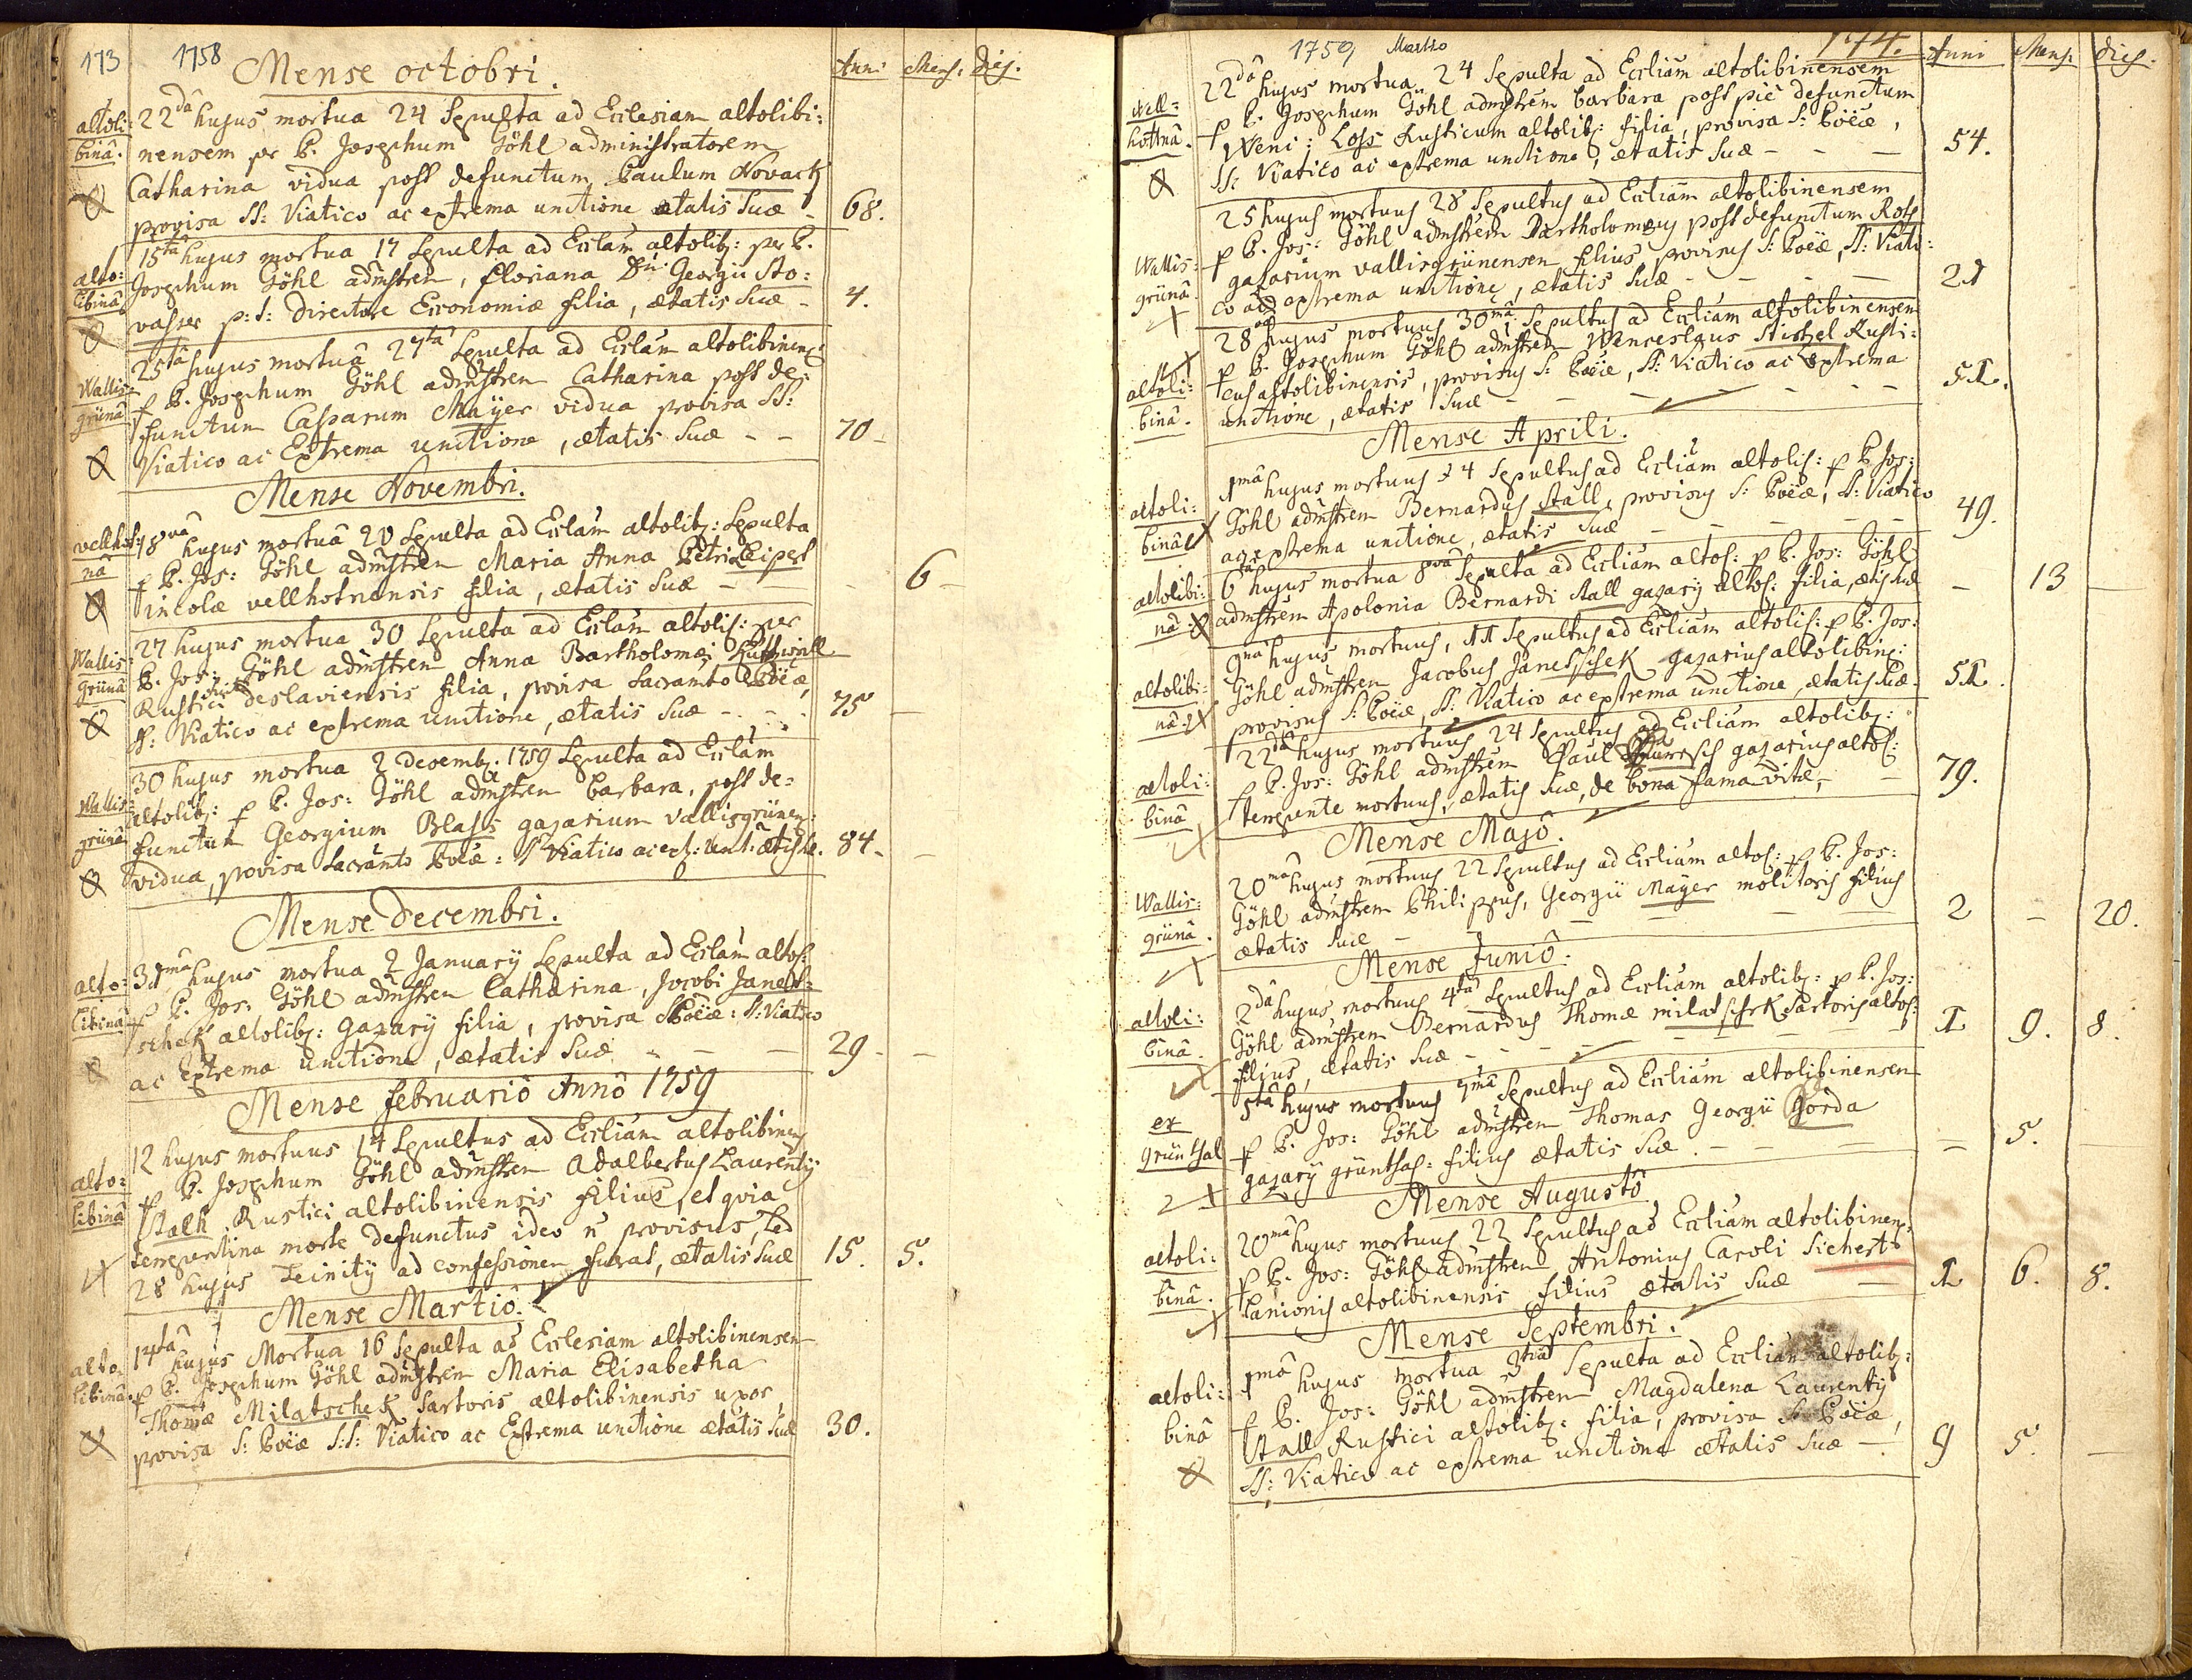 173 1758
Mense octobri.
Anni Mens: Dies.
altoli: 22dâ hujus mortua 24 Sepulta ad Ecclesiam altolibi:
binâ. nensem per P. Josephum Göhl administratorem
Catharina vidua post defunctum Paulum Novack
provisa SS: Viatico ac extrema unctione ætatis Suæ - 68.
15tâ hujus mortua 17 Sepulta ad Ecclam altolib: per P.
alto: Josephum Göhl admstrem, Floriana Dni Georgii Sto:
libinâ vasser p: t: Directore Economiæ filia, ætatis Suæ - 4.
25tâ hujus mortua 27tâ Sepulta ad Ecclam altolibinen:
Wallis- p P. Josephum Göhl admstrem Catharina post de:
grünâ functum Casparum Mayer vidua provisa SS:
Viatico ac Extrema unctione, ætatis Suæ - - 70 -
Mense Novembri.
vellhot: 18vâ hujus mortuâ 20 Sepulta ad Ecclam altolib: Sepulta
nâ p P. Jos: Göhl admstrem Maria Anna Petri Leipert
incolæ vellhotnensis filia, ætatis Suæ - - - 6 -
27 hujus mortua 30 Sepulta ad Ecclam altolib: per
Wallis: P. Jos: Göhl admstrem Anna Bartholomæi
grünâ Rustici deslaviensis filia, provisa Sacramto Pœæ,
SS: Viatico ac extrema unctione, ætatis Suæ - - - 75 -
30 hujus mortua 2 decemb: 1759 Sepulta ad Ecclam
Wallis: altolib: p P. Jos: Göhl admstrem Barbara, post de=
grünâ functum Georgium Blass gazarium vallisgrünen:
vidua, provisa Sacramto Pœæ: S Viatico ac ext: unt: ætis S. 84 - -
Mense Decembri.
alto: 31mâ hujus mortua 2 January Sepulta ad Ecclam altol:
libinâ p P. Jos: Göhl admstrem Catharina, Jacobi Janet:
schek altolib: Gazarÿ filia, provisa S Pœæ: S: Viatico
ac Extrema unctione, ætatis Suæ - - - 29 - -
Mense februariô Annô 1759
12 hujus mortuus 14 Sepultus ad Eccliam altolibinen
alto: p P. Josephum Göhl admstrem Adalbertus Laurentÿ
libinâ Stalk Rustici altolibinensis filius, et quia
terrepentina morte defunctus ideo n provisus, Sed
28 hujus ad confessionem fuerat, ætatis Suæ 15. 5.
Mense Martiô.
14tâ hujus Mortua 16 Sepulta ad Ecclesiam altolibinensem
alto- p P. Josephum Göhl admstrem Maria Elisabetha
libinâ. Thomæ Milatschek Sartoris altolibinensis uxor,
provisa S: Pœæ S:S: Viatico ac Extrema unctione ætatis Suæ 30.
1759 Martio 174.
Anni Mens: dies.
22dâ hujus mortua 24 Sepulta ad Eccliam altolibinensem
vell= p P. Josephum Göhl admstrem barbara post piè defunctum
hottnâ. Weni: Loss Rusticum altolib: filia, provisa S: Pœæ,
SS: Viatico ac extrema unctione, ætatis Suæ - - - 54.
25 hujus mortuus 28 Sepultus ad Eccliam altolibinensem
Wallis: p P. Jos: Göhl admstrem Bartholomæus post defunctum Rots
grünâ. gazarium vallisgrünensem filius provisus S: Pœæ, SS: Viati:
co ac extrema unctione, ætatis Suæ - - - 21
28 hujus mortuus 30mâ Sepultus ad Eccliam altolibinensem
altoli: p P. Josephum Göhl admstrem Wenceslaus Stichel Rusti:
binâ. cus altolibinensis, provisus S: Pœæ, SS: Viatico ac Extrema
unctione, ætatis Suæ - - - - - 51.
Mense Aprili.
1mâ hujus mortuus 4 Sepultus ad Eccliam altolib: p P. Jos:
altoli: Göhl admstrem Bernardus Stall, provisus S: Pœæ, S: Viatico
binâ ac extrema unctione, ætatis Suæ - - - - 49.
6tâ hujus mortua 8vâ Sepulta ad Eccliam altol: p P. Jos: Göhl
altolibi: admstrem Apolonia Bernardi Stall gazarÿ altol: filia, ætis Suæ - 13 -
nâ
9nâ hujus mortuus, 11 Sepultus ad Eccliam altolib: p P. Jos:
altolibi: Göhl admstrem Jacobus Janetschek gazarius altolibin:
nâ: provisus S: Pœæ, SS: Viatico ac extrema unctione, ætatis Suæ 51.
22dâ hujus mortuus 24 Sepultus ad Eccliam altolib:
altoli: p P. Jos: Göhl admstrem Paul gazarius altol:
binâ terrepente mortuus, ætatis Suæ, de bona fama vitæ, - 79.
Mense Majô.
20mâ hujus mortuus 22 Sepultus ad Eccliam altol: p P. Jos:
Wallis= Göhl admstrem Philippus, Georgii Mayer molitoris filius
grünâ. ætatis Suæ - - - - - 2 - 20.
Mense Juniô.
2dâ hujus, mortuus 4tâ Sepultus ad Eccliam altolib: p P. Jos:
altoli: Göhl admstrem Bernardus Thomæ milatschek Sartoris altol:
binâ. filius, ætatis Suæ - - - - - 1 9. 8.
5tâ hujus mortuus 7mâ Sepultus ad Eccliam altolibinensem
ex p P. Jos: Göhl admstrem Thomas Georgii Horda
grünthal gazarÿ grünthal: filius ætatis Suæ. - - - - 5. -
Mense Augustô
20mâ hujus mortuus 22 Sepultus ad Eccliam altolibinen:
altoli: p P. Jos: Göhl admstrem Antonius Caroli Sichert
binâ. Lanionis altolibinensis filius ætatis Suæ - 1 6. 8.
Mense Septembri.
1mâ hujus mortua 3tiâ Sepulta ad Eccliam altolib:
altoli: p P. Jos: Göhl admstrem Magdalena Laurentÿ
binâ Stall Rustici altolib: filia, provisa S: Pœæ,
SS: Viatico ac extrema unctione ætatis Suæ - 9 5. -